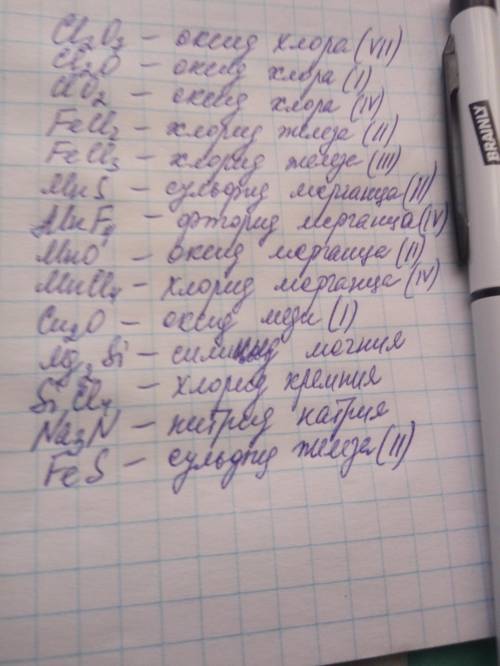 Cl₂O₇ – оксид хлора (VII)
Cl₂O – оксид хлора (I)
ClO₂ – оксид хлора (IV)
FeCl₂ – хлорид железа (II)
FeCl₃ – хлорид железа (III)
MnS – сульфид марганца (II)
MnF₄ – фторид марганца (IV)
MnO – оксид марганца (II)
MnCl₄ – хлорид марганца (IV)
Cu₂O – оксид меди (I)
Mg₂Si – силицид магния
SiCl₄ – хлорид кремния
Na₃N – нитрид натрия
FeS – сульфид железа (II)
BRAINLY